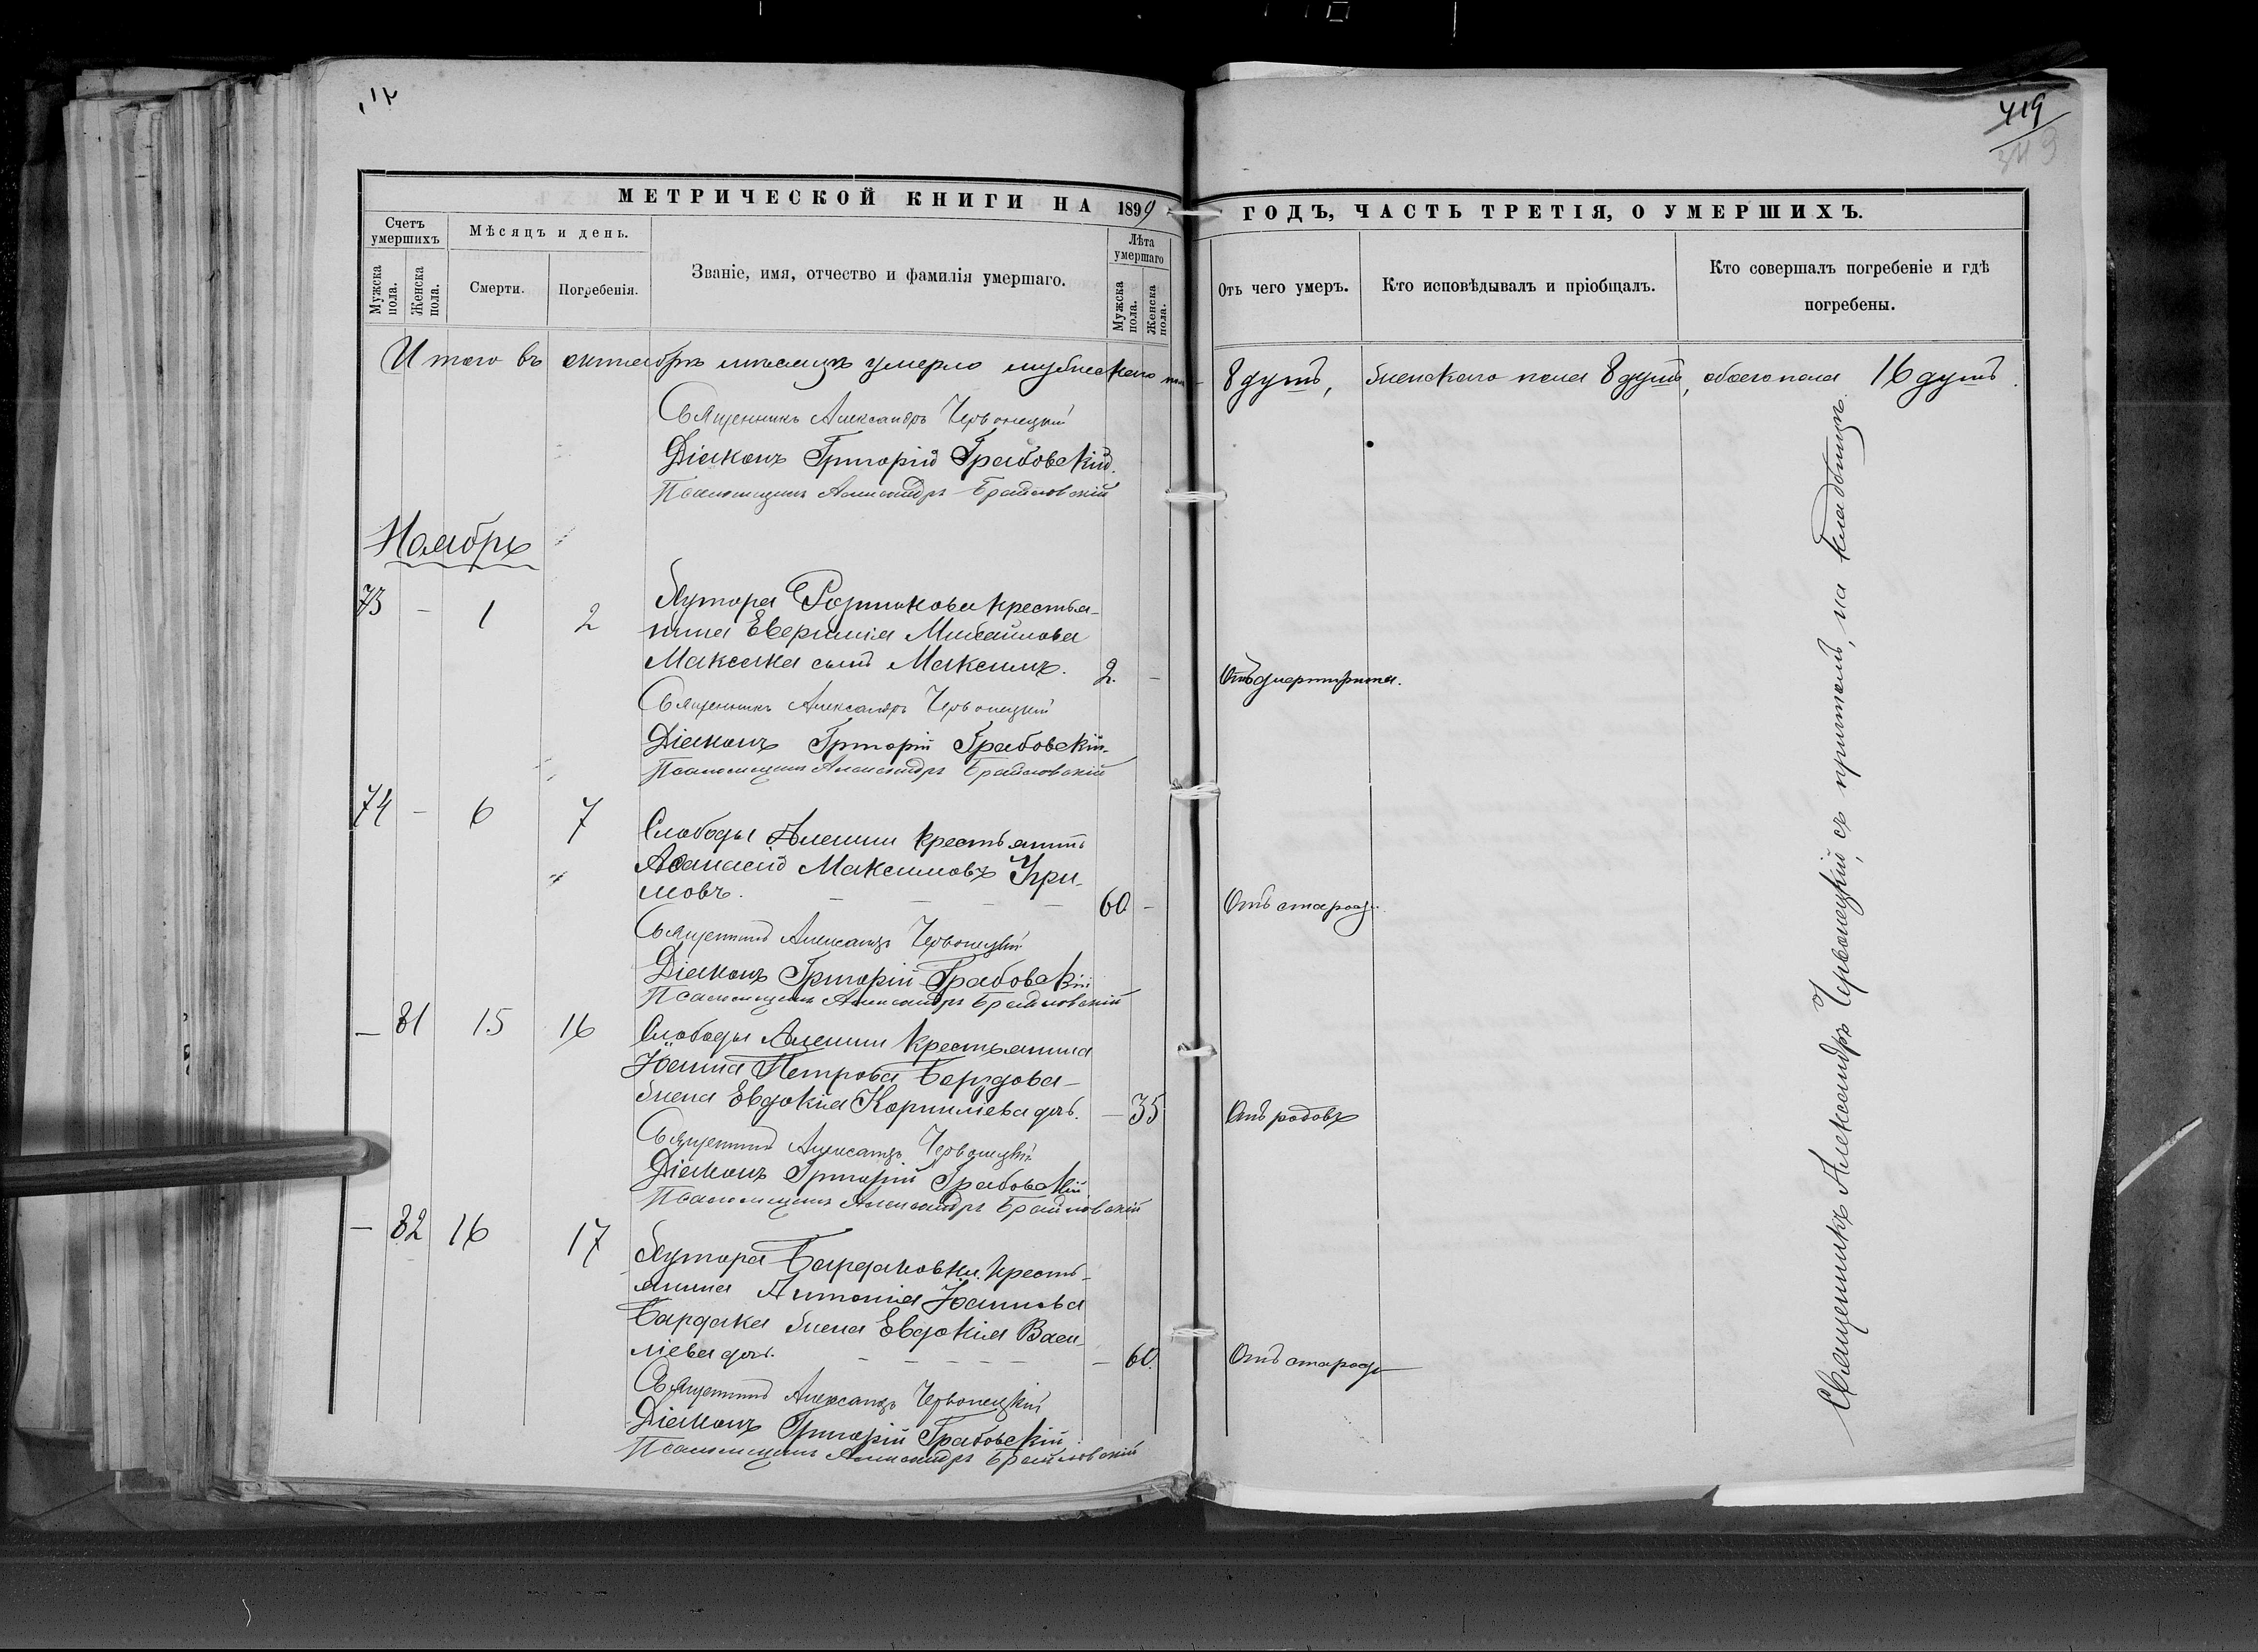 419
349
МЕТРИЧЕСКОЙ КНИГИ НА 1899 ГОДЪ, ЧАСТЬ ТРЕТІЯ, О УМЕРШИХЪ.
Счетъ умершихъ
Мужска пола.
Женска пола.
Мѣсяцъ и день.
Смерти.
Погребенія.
Званіе, имя, отчество и фамилія умершаго.
Лѣта умершаго
Мужска пола.
Женска пола.
Отъ чего умеръ.
Кто исповѣдывалъ и пріобщалъ.
Кто совершалъ погребеніе и гдѣ
погребены.
Итого въ октябрѣ мѣсяцѣ умерло мужескаго пола 8 душъ, женскаго пола 8 душъ, обоего пола 16 душъ.
Священникъ Александръ Червонецкій
Діаконъ Григорій Грабовскій.
Псаломщикъ Александръ Браиловскій
Ноябрь
73 - 1 2
Хутора Розтокова крестья-
нина Евфимія Михайлова
Максака сынъ Максимъ. 2. -
Священникъ Александръ Червонецкій
Діаконъ Григорій Грабовскій.
Псаломщикъ Александръ Браиловскій
74 - 6 7
Слободы Алешни крестьянинъ
Аѳанасій Максимовъ Угри-
мовъ. 60 - Отъ старос.
Священникъ Александръ Червонецкій
Діаконъ Григорій Грабовскій
Псаломщикъ Александръ Браиловскій
- 81 15 16
Слободы Алешни крестьянина
Іоанна Петрова
жена Евдокія Корнилiева дочь. - 35 Отъ родовъ
Священникъ Александръ Червонецкій
Діаконъ Григорій Грабовскій
Псаломщикъ Александръ Браиловскій
- 82 16 17
Хутора Бардаковки кресть-
янина Антонія Іоаннова
Бардака жена Евдокія Васи-
ліева дочь. - 60. Отъ старос
Священникъ Александръ Червонецкій
Діаконъ Григорій Грабовскій
Псаломщикъ Александръ Браиловскій
Священникъ Александръ Червонецкій, съ причтомъ, на кладбищѣ.